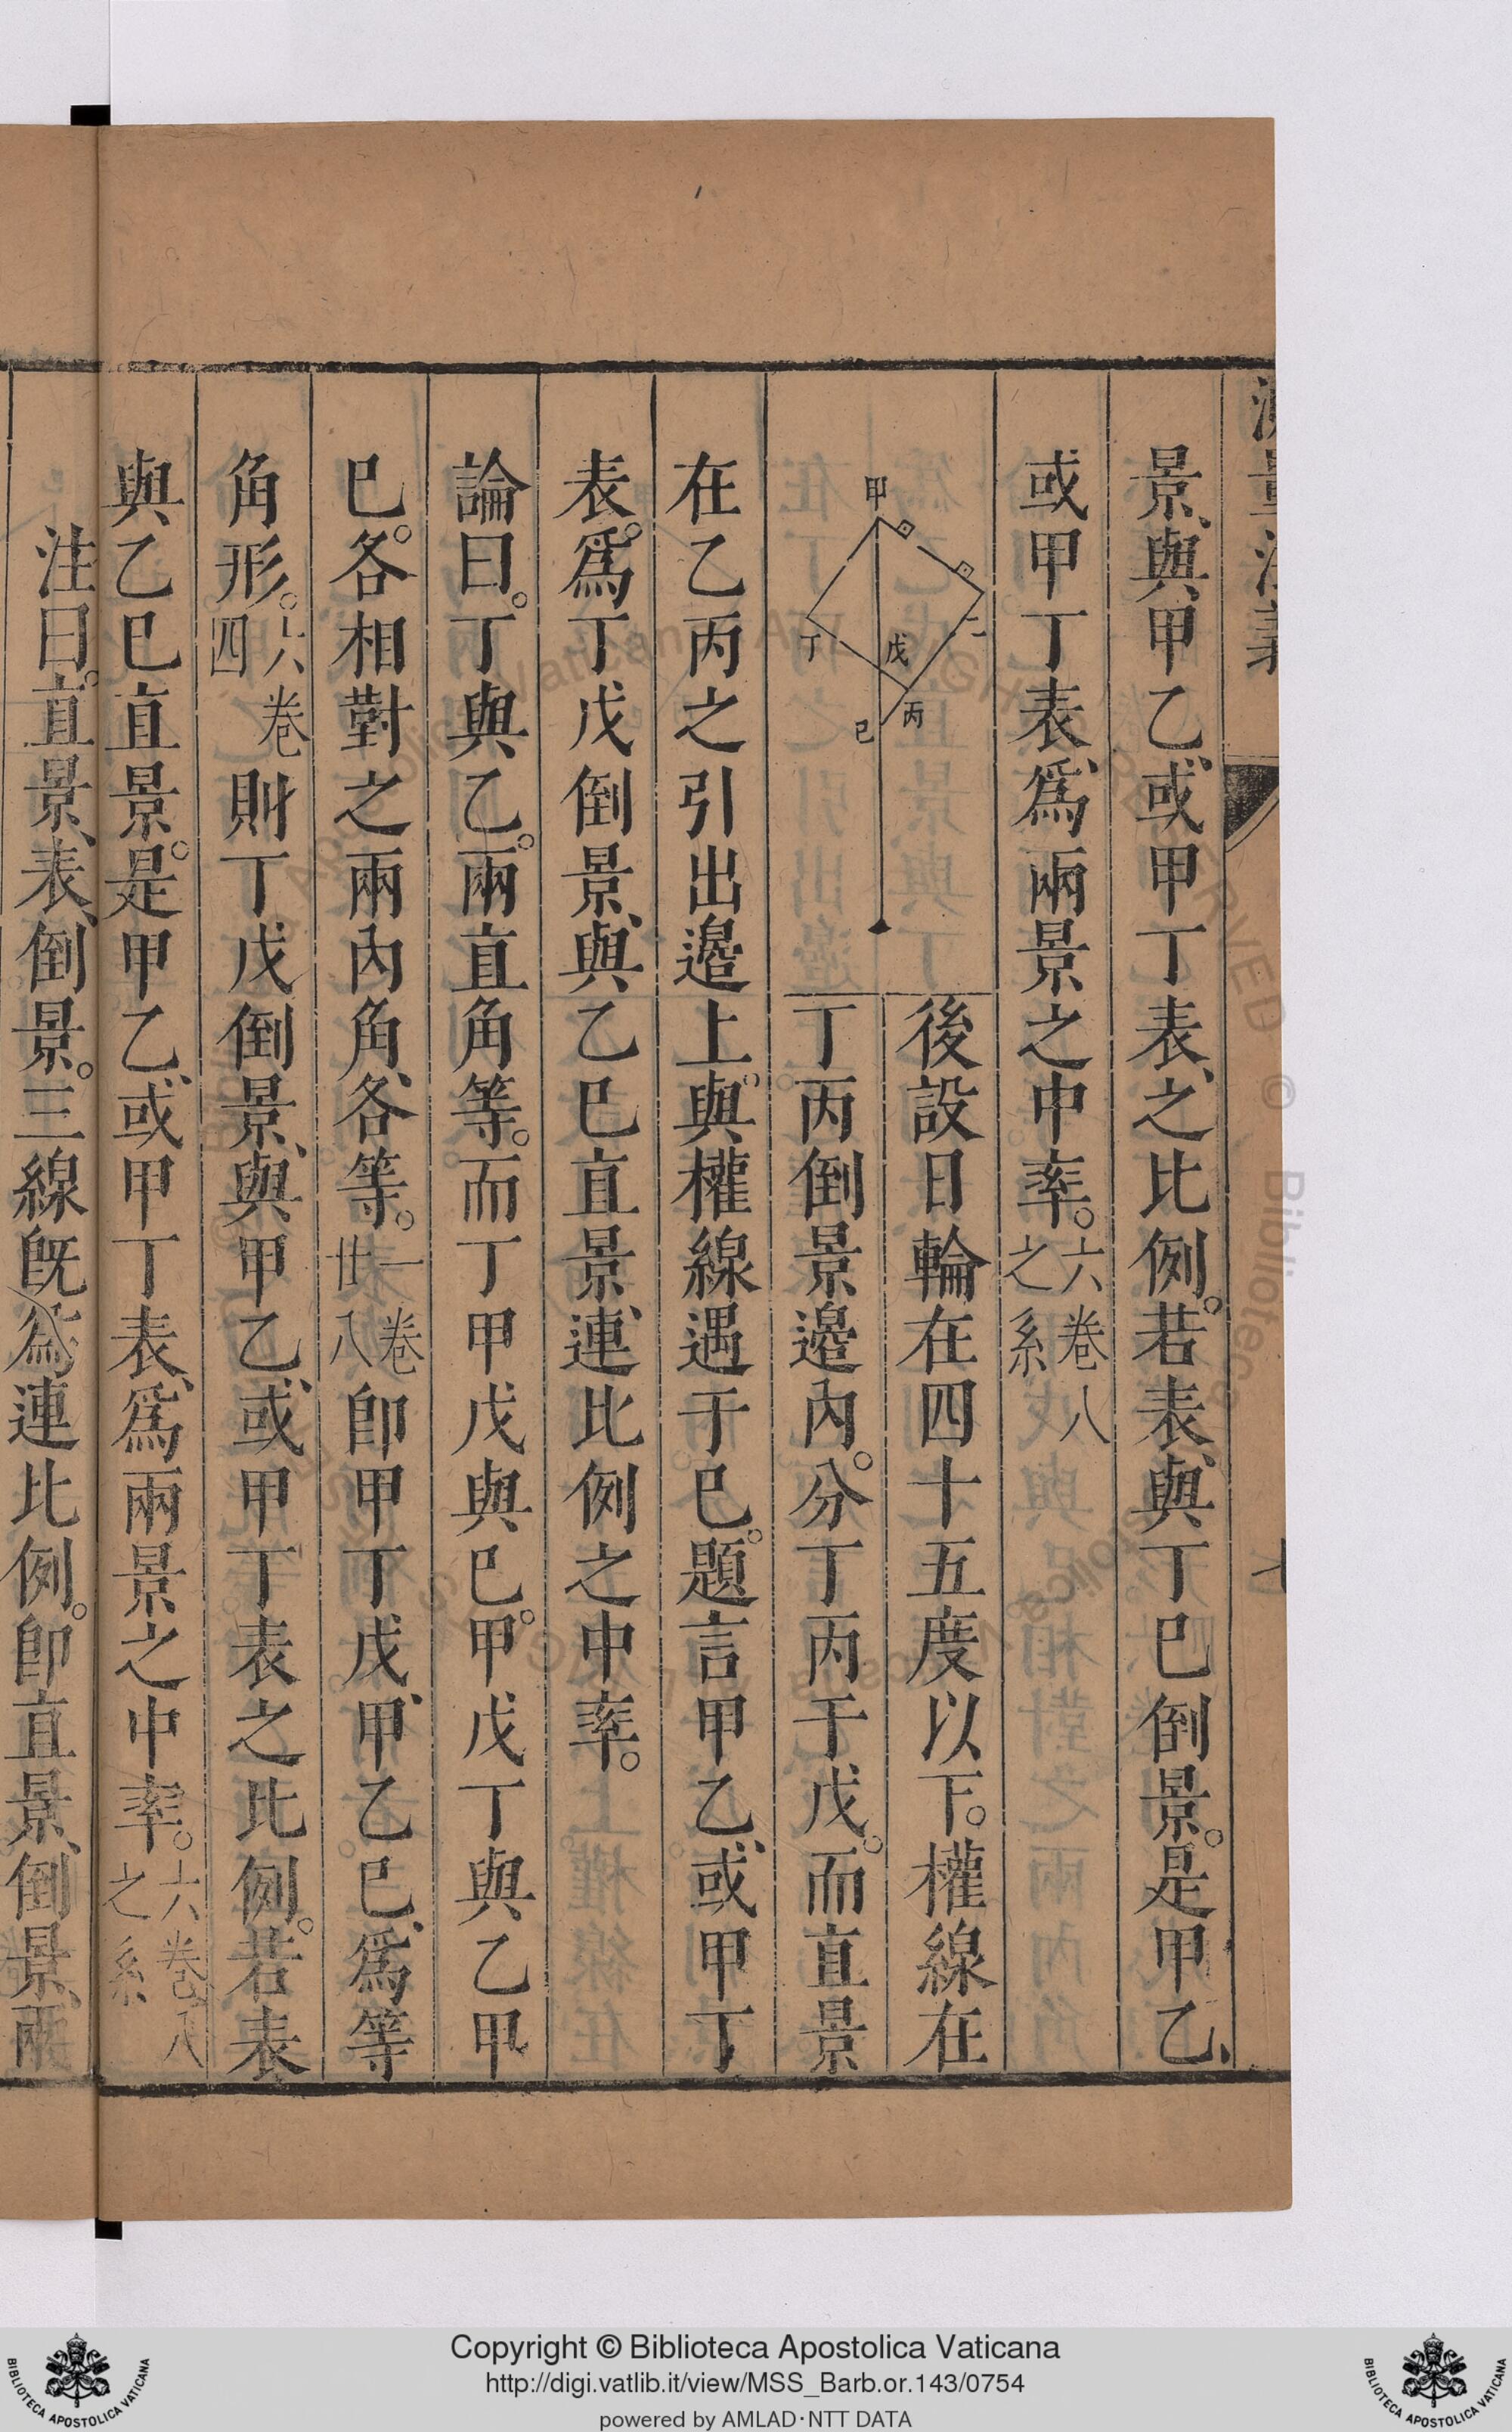 測量法義
七
景、與甲乙、或甲丁表、之比例。若表、與丁巳倒景。是甲乙、
或甲丁表、爲兩景之中率。六卷八之系
甲
乙
丁
戊
丙
己
後設日輪在四十五度以下。權線在
丁丙倒景邉內。分丁丙于戊。而直景
在乙丙之引出邉上。與權線遇于巳。題言甲乙、或甲丁
表。爲丁戊倒景、與乙巳直景、連比例之中率。
論曰。丁與乙。兩直角等。而丁甲戊與巳。甲戊丁與乙甲
巳。各相對之兩內角、各等。一卷廿八卽甲丁戊、甲乙巳、爲等
角形。六卷四則丁戊倒景、與甲乙、或甲丁表之比例。若表
與乙巳直景。是甲乙、或甲丁表、爲兩景之中率。六卷八之系
注曰。直景、表、倒景。三線旣爲連比例。卽直景、倒景、兩
Copyright © Biblioteca Apostolica Vaticana
http://digi.vatlib.it/view/MSS_Barb.or.143/0754
powered by AMLAD·NTT DATA
BIBLIOTECA APOSTOLICA VATICANA
BIBLIOTECA APOSTOLICA VATICANA